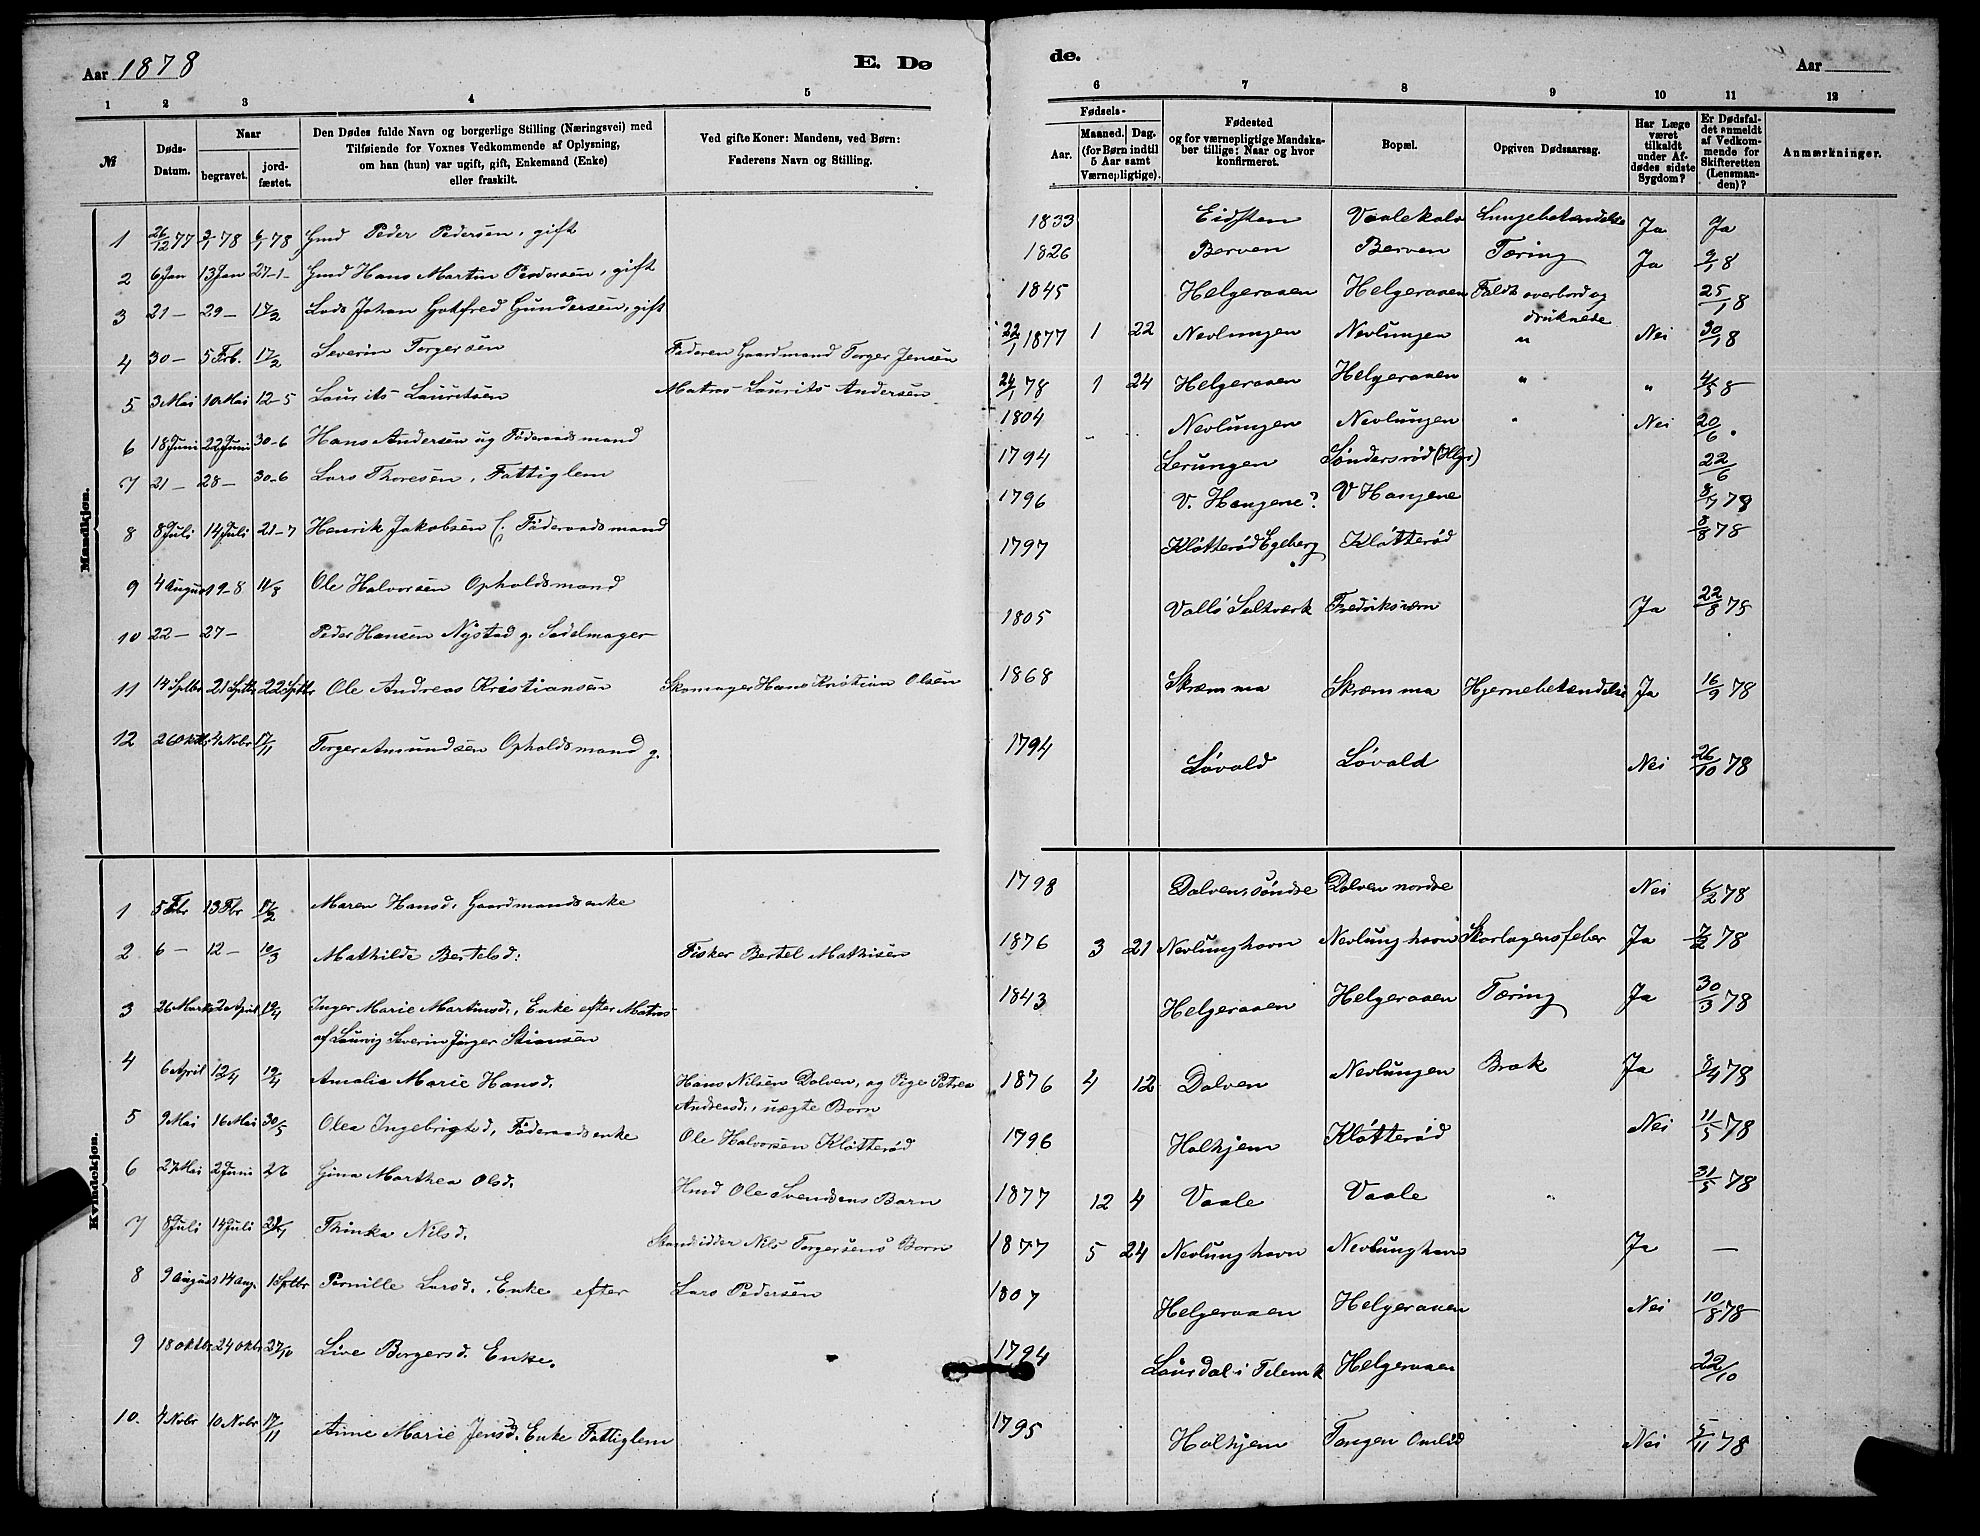 Aar 1878
E. Dø
de.
Aar
1 2 3 4 5 6 7 8 9 10 11 12
№
Døds-Datum.
Naar
begravet.
jord-fæstet.
Den Dødes fulde Navn og borgerlige Stilling (Næringsvei) med
Tilføiende for Voxnes Vedkommende af Oplysning,
om han (hun) var ugift, gift, Enkemand (Enke)
eller fraskilt.
Ved gifte Koner: Mandens, ved Børn:
Faderens Navn og Stilling.
Fødsels-
Aar.
Maaned. Dag.
(for Børn indtil
5 Aar samt
Værnepligtige).
Fødested
og for værnepligtige Mandska-
ber tillige: Naar og hvor
konfirmeret.
Bopæl.
Opgiven Dødsaarsag.
Har Læge
været
tilkaldt
under Af-
dødes sidste
Sygdom?
Er Dødsfal-
det anmeldt
af Vedkom-
mende for
Skifteretten
(Lensman-
den)?
Anmærkninger.
Mandkjøn.
1 26/12 77 2/1 78 6/1 78 Gmd Peder Pedersen, gift 1833 Eidsten Vaalekalv Lungebetændelse Ja Ja
2 6 Jan 13 Jan 27-1- Gmd Hans Martin Pedersen, gift 1826 Berven Berven Tæring Ja 9/1 8
3 21- 29- 17/2 Lods Johan Gotfred Gundersen, gift 1845 Helgeraaen Helgeraaen Faldt overbord og druknede 25/1 8
4 30- 5 Feb. 17/2 Severin Torgersen Faderen Gaardmand Torger Jensen 22/1 1877 1 22 Nevlungen Nevlungen " Nei 30/1 8
5 3 Mai 10 Mai 12-5 Laurits Lauritsen Matros Laurits Andersen 24/1 78 1 24 Helgeraaen Helgeraaen " " 4/5 8
6 18 Juni 22 Juni 30-6 Hans Andersen ug Føderaadsmand 1804 Nevlungen Nevlungen " Nei 20/6
7 21- 28- 30-6 Lars Thoresen, Fattiglem 1794 Lerungen Søndersrød (Hlgr) 22/6
8 8 Juli 14 Juli 21-7 Henrik Jakobsen f. Føderaadsmand 1796 V. Haugene? V Haugene 8/7 78
9 4 August 9-8 11/8 Ole Halvorsen Opholdsmand 1797 Kløtterød Egeberg Kløtterød 8/8 78
10 22- 27- Peder Hansen Nystad g. Sadelmager 1805 Vallø Saltværk Fredriksværn Ja 22/8 78
11 14 Sptbr 21 Sptbr 22 Sptbr Ole Andreas Kristiansen Skomager Hans Kristian Olsen 1868 Skræmma Skræmma Hjernebetændelse Ja 16/9 78
12 26 Oktb 4 Nobr 17/11 Torger Amundsen Opholdsmand g. 1794 Løvald Løvald Nei 26/10 78
Kvindekjøn.
1 5 Fbr 13 Fbr 17/2 Maren Hansd. Gaardmandsenke 1798 Dolven søndre Dolven nordre Nei 6/2 78
2 6- 12- 10/3 Mathilde Bertelsd. Fisker Bertel Mathisen 1876 3 21 Nevlunghavn Nevlunghavn Skarlagensfeber Ja 7/2 78
3 26 Marts 2 April 19/4 Inger Marie Martinsd., Enke efter Matros
af Laurvig Severin Jörger Stiansen 1843 Helgeraaen Helgeraaen Tæring Ja 30/3 78
4 6 April 12/4 19/4 Amalie Marie Hansd. Hans Nilsen Dolven, og Pige Petrea
Andreasd., uægte Barn 1876 4 12 Dolven Nevlungen Brok Ja 8/4 78
5 9 Mai 16 Mai 30/5 Olea Ingebrigtd, Føderaadsenke Ole Halvorsen Kløtterød 1796 Holhjem Kløtterød Nei 11/5 78
6 27 Mai 2 Juni 2/6 Gina Marthea Olsd. Hmd Ole Svendsens Barn 1877 12 4 Vaale Vaale " 31/5 78
7 8 Juli 14 Juli 21/7 Thinka Nilsd. Nils Torgersens Barn 1877 5 24 Nevlunghavn Nevlunghavn Ja —
8 9 August 14 Aug. 1 Sptbr Pernille Larsd. Enke efter Lars Pedersen 1807 Helgeraaen Helgeraaen Nei 10/8 78
9 18 oktbr 24 oktbr 27/10 Live Borgersd. Enke. 1794 Laurdal i Telemk Helgeraaen 22/10
10. 4 Nobr 10 Nobr 17/11 Anne Marie Jensd. Enke Fattiglem 1795 Holhjem Tangen Omlid Nei 5/11 78